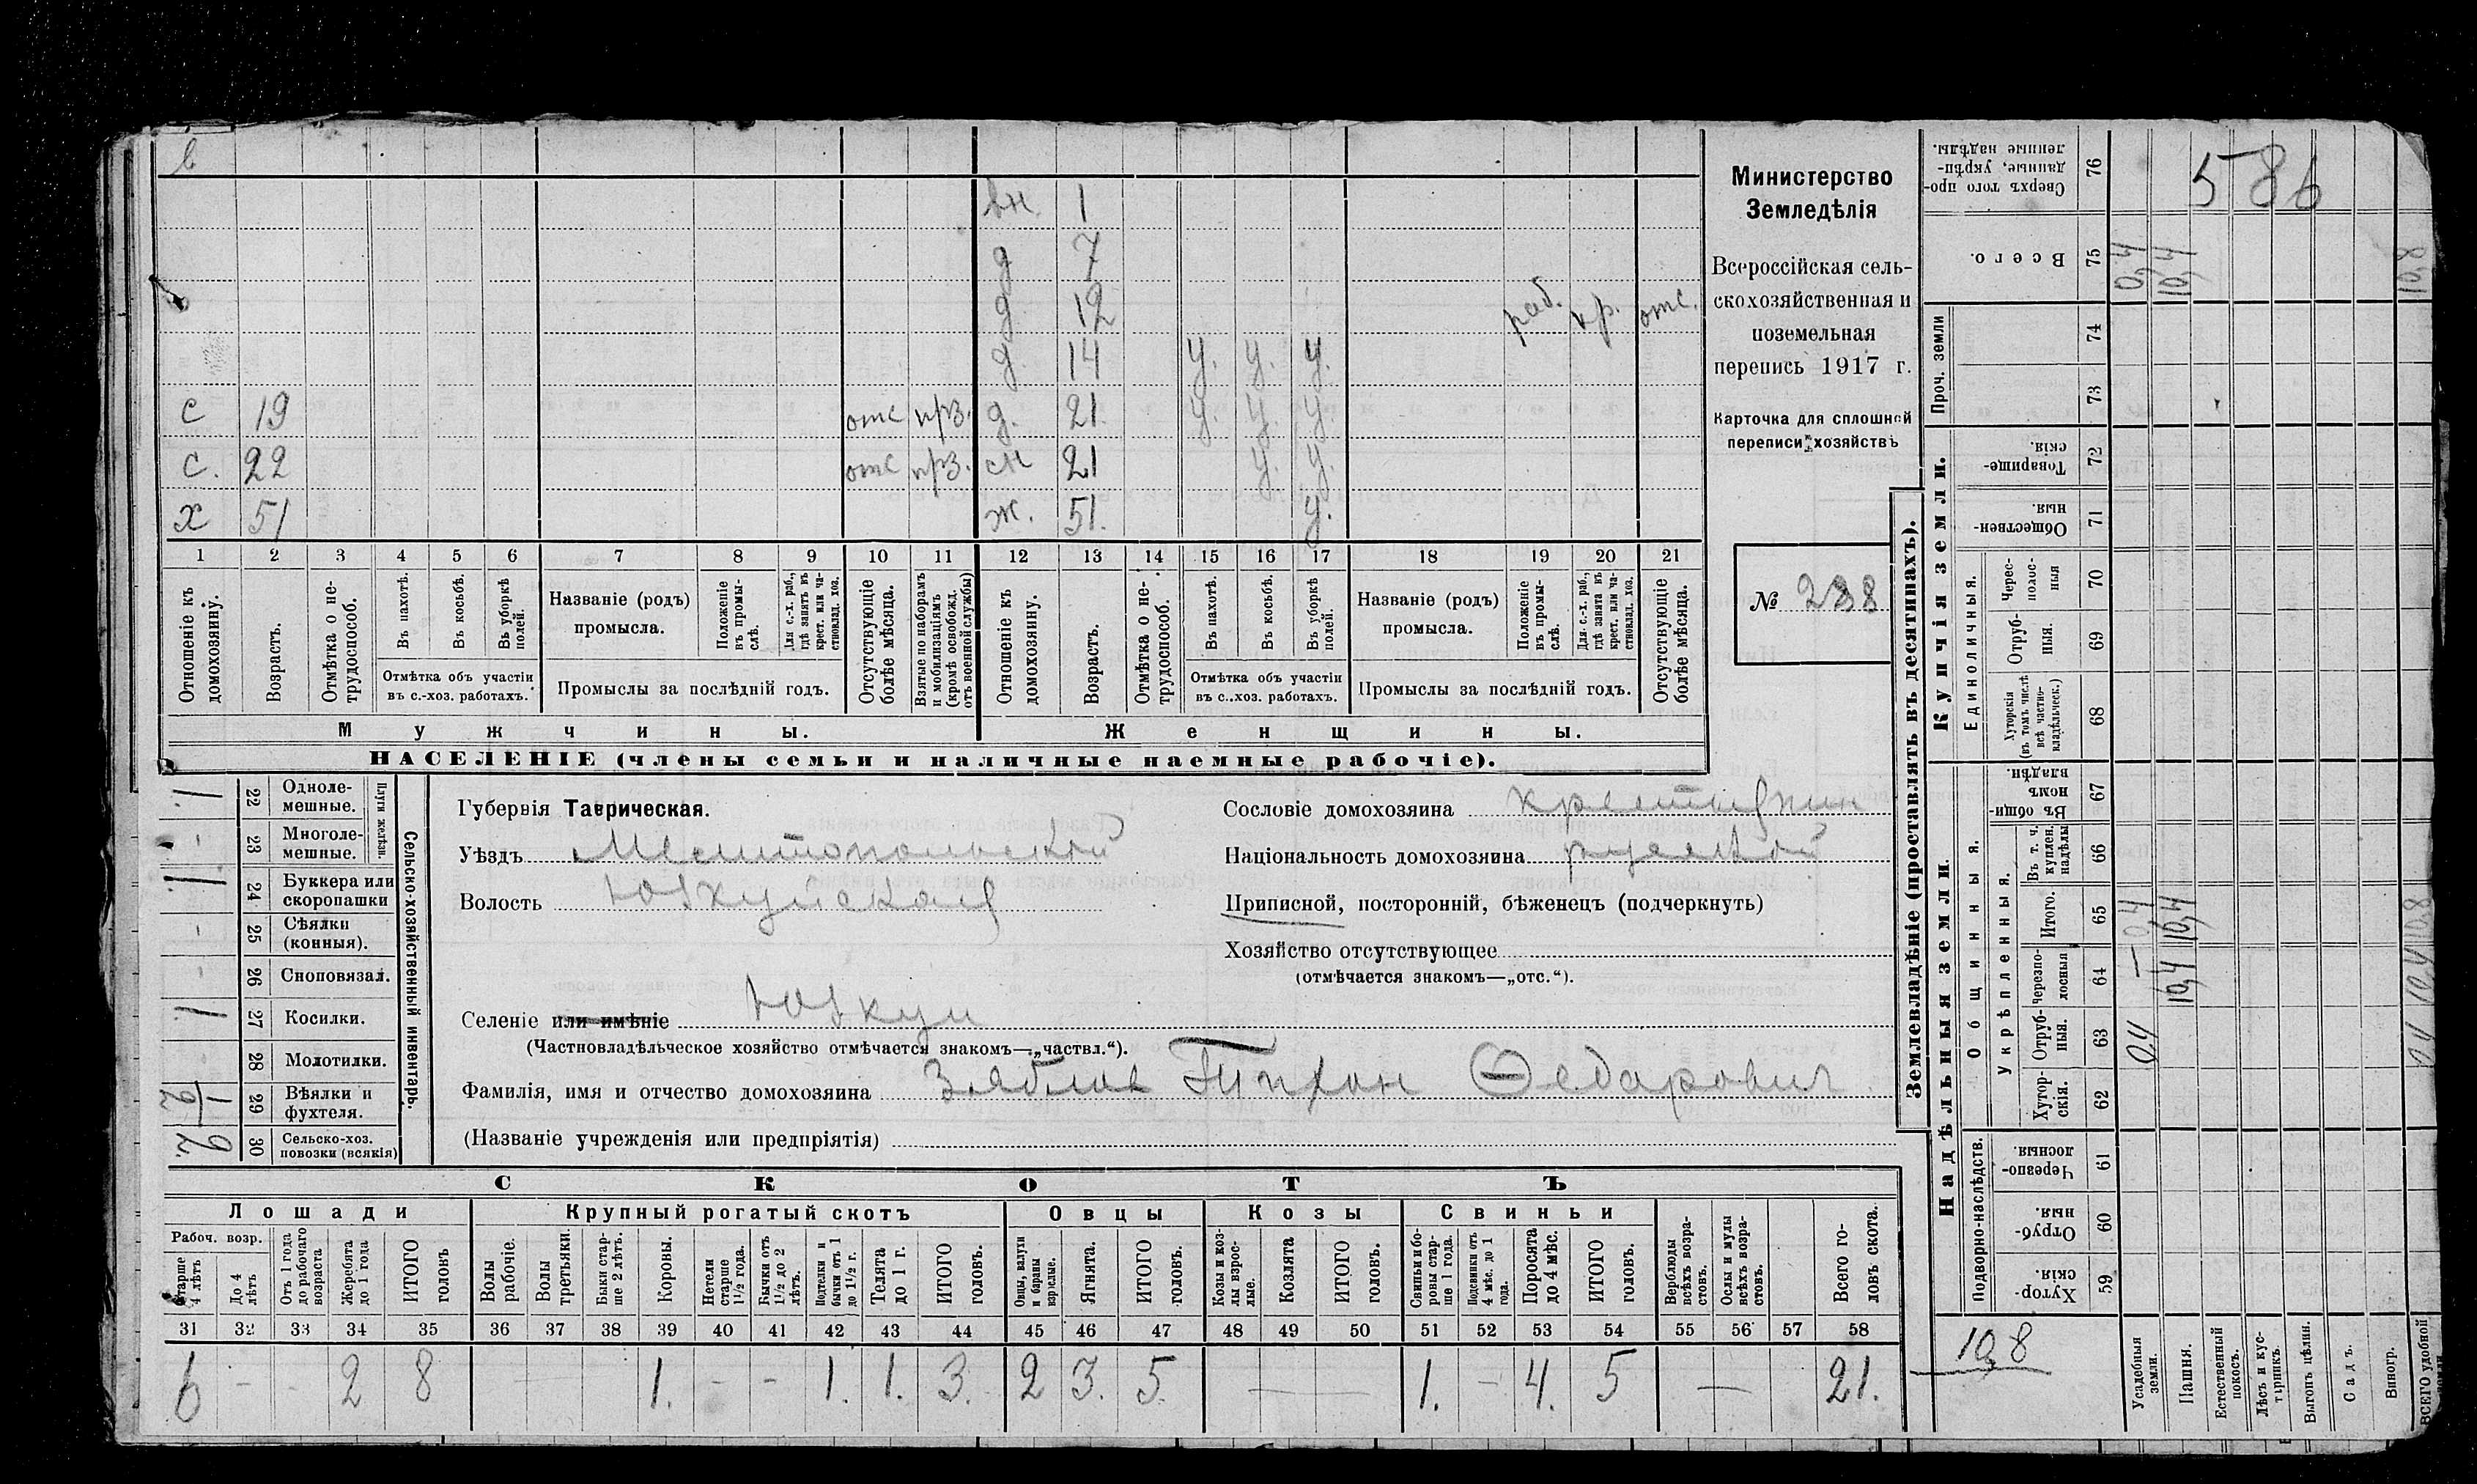 в
вн. 1
д 7
д. 12 раб. кр. отс.
д. 14 у. у. у.
с 19 отс прз. д. 21. у. у. у.
с. 22 отс прз. сн 21 у. у.
х 51 ж. 51. у.
1 2 3 4 5 6 7 8 9 10 11 12 13 14 15 16 17 18 19 20 21
Отношеніе къ домохозяину.
Возрастъ.
Отмѣтка о не-
трудоспособ.
Въ пахотѣ.
Въ косьбѣ.
Въ уборкѣ полей.
Отмѣтка объ участіи
въ с.-хоз. работахъ.
Названіе (родъ)
промысла.
Положеніе
въ промы-
слѣ.
Для с.-х. раб.,
гдѣ занятъ въ
крест. или ча-
стновлад. хоз.
Промыслы за послѣдній годъ.
Отсутствующіе
болѣе мѣсяца.
Взятые по наборамъ
и мобилизаціямъ
(кромѣ освобожд.
отъ военной службы)
Отношеніе къ
домохозяину.
Возрастъ.
Отмѣтка о не-
трудоспособ.
Въ пахотѣ.
Въ косьбѣ.
Въ уборкѣ
полей.
Отмѣтка объ участіи
въ с.-хоз. работахъ.
Названіе (родъ)
промысла.
Положеніе
въ промы-
слѣ.
Для с.-х. раб.,
гдѣ занята въ
крест. или ча-
стновлад. хоз.
Промыслы за послѣдній годъ.
Отсутствующіе
болѣе мѣсяца.
Мужчины. Женщины.
НАСЕЛЕНІЕ (члены семьи и наличные наемные рабочіе).
Министерство
Земледѣлія
Всероссійская сель-
скохозяйственная и
поземельная
перепись 1917 г.
Карточка для сплошной
переписи хозяйствъ
№ 238
Сельско-хозяйственный инвентарь.
Плуги желѣзн.
1. 22 Одноле-
мешные.
- 23 Многоле-
мешные.
1. 24 Буккера или
скоропашки
- 25 Сѣялки
(конныя).
- 26 Сноповязал.
1. 27 Косилки.
- 28 Молотилки.
1/2 29 Вѣялки и
фухтеля.
2. 30 Сельско-хоз.
повозки (всякія)
Губернія Таврическая.
Уѣздъ Мелитопольской
Волость Юзкуйская
Селеніе или имѣніе Юзкуи
(Частновладѣльческое хозяйство отмѣчается знакомъ—„частвл.“).
Фамилія, имя и отчество домохозяина Зяблов Тихон Ѳедарович
(Названіе учрежденія или предпріятія)
Сословіе домохозяина крестьянин
Національность домохозяина русской
Приписной, посторонній, бѣженецъ (подчеркнуть)
Хозяйство отсутствующее
(отмѣчается знакомъ—„отс.“).
СКОТЪ
Лошади Крупный рогатый скотъ Овцы Козы Свиньи
Рабоч. возр.
Старше
4 лѣтъ
До 4
лѣтъ
Отъ 1 года
до рабочаго
возраста
Жеребята
до 1 года
ИТОГО
головъ
Волы
рабочіе.
Волы
третьяки.
Быки стар-
ше 2 лѣтъ.
Коровы.
Нетели
старше
1½ года.
Бычки отъ
1½ до 2
лѣтъ.
Подтелки и
бычки отъ 1
до 1½ г.
Телята
до 1 г.
ИТОГО
головъ.
Овцы, валухи
и бараны
взрослые.
Ягнята.
ИТОГО
головъ.
Козы и коз-
лы взрос-
лые.
Козлята
ИТОГО
головъ.
Свиньи и бо-
ровы стар-
ше 1 года.
Подсвинки отъ
4 мѣс. до 1
года.
Поросята
до 4 мѣс.
ИТОГО
головъ.
Верблюды
всѣхъ возра-
стовъ.
Ослы и мулы
всѣхъ возра-
стовъ.
Всего го-
ловъ скота.
31 32 33 34 35 36 37 38 39 40 41 42 43 44 45 46 47 48 49 50 51 52 53 54 55 56 57 58
6 - - 2 8 1. - - 1. 1. 3. 2 3. 5. — — 1. - 4. 5 — 21.
Землевладѣніе (проставлять въ десятинахъ).
Надѣльныя земли. Купчія земли.
Подворно-наслѣдств.
Общинныя.
Укрѣпленныя.
Единоличныя.
Проч. земли
Хутор-
скія. 59
Отруб-
ныя. 60
Черезпо-
лосныя 61
Хутор-
скія. 62
Отруб-
ныя. 63
Черезпо-
лосныя 64
Итого. 65
Въ т. ч.
куплен.
надѣлы 66
Въ общи-
номъ
владѣн. 67
Хуторскія
(въ томъ числѣ
всѣ частно-
владѣльческ.) 68
Отруб-
ныя. 69
Черес-
полос-
ныя 70
Обществен-
ныя. 71
Товарище-
скія. 72
73
74
Всего. 75
Сверхъ того про-
данные, укрѣп-
ленные надѣлы. 76
586
10,8
Усадебныя
земли. 0,4 — 0,4 0,4
Пашня. 10,4 10,4 10,4
Естественный
покосъ.
Лѣсъ и кус-
тарникъ.
Выгонъ цѣлин.
Садъ.
Виногр.
ВСЕГО удобной
земли 0,4 10,4 10,8 10,8